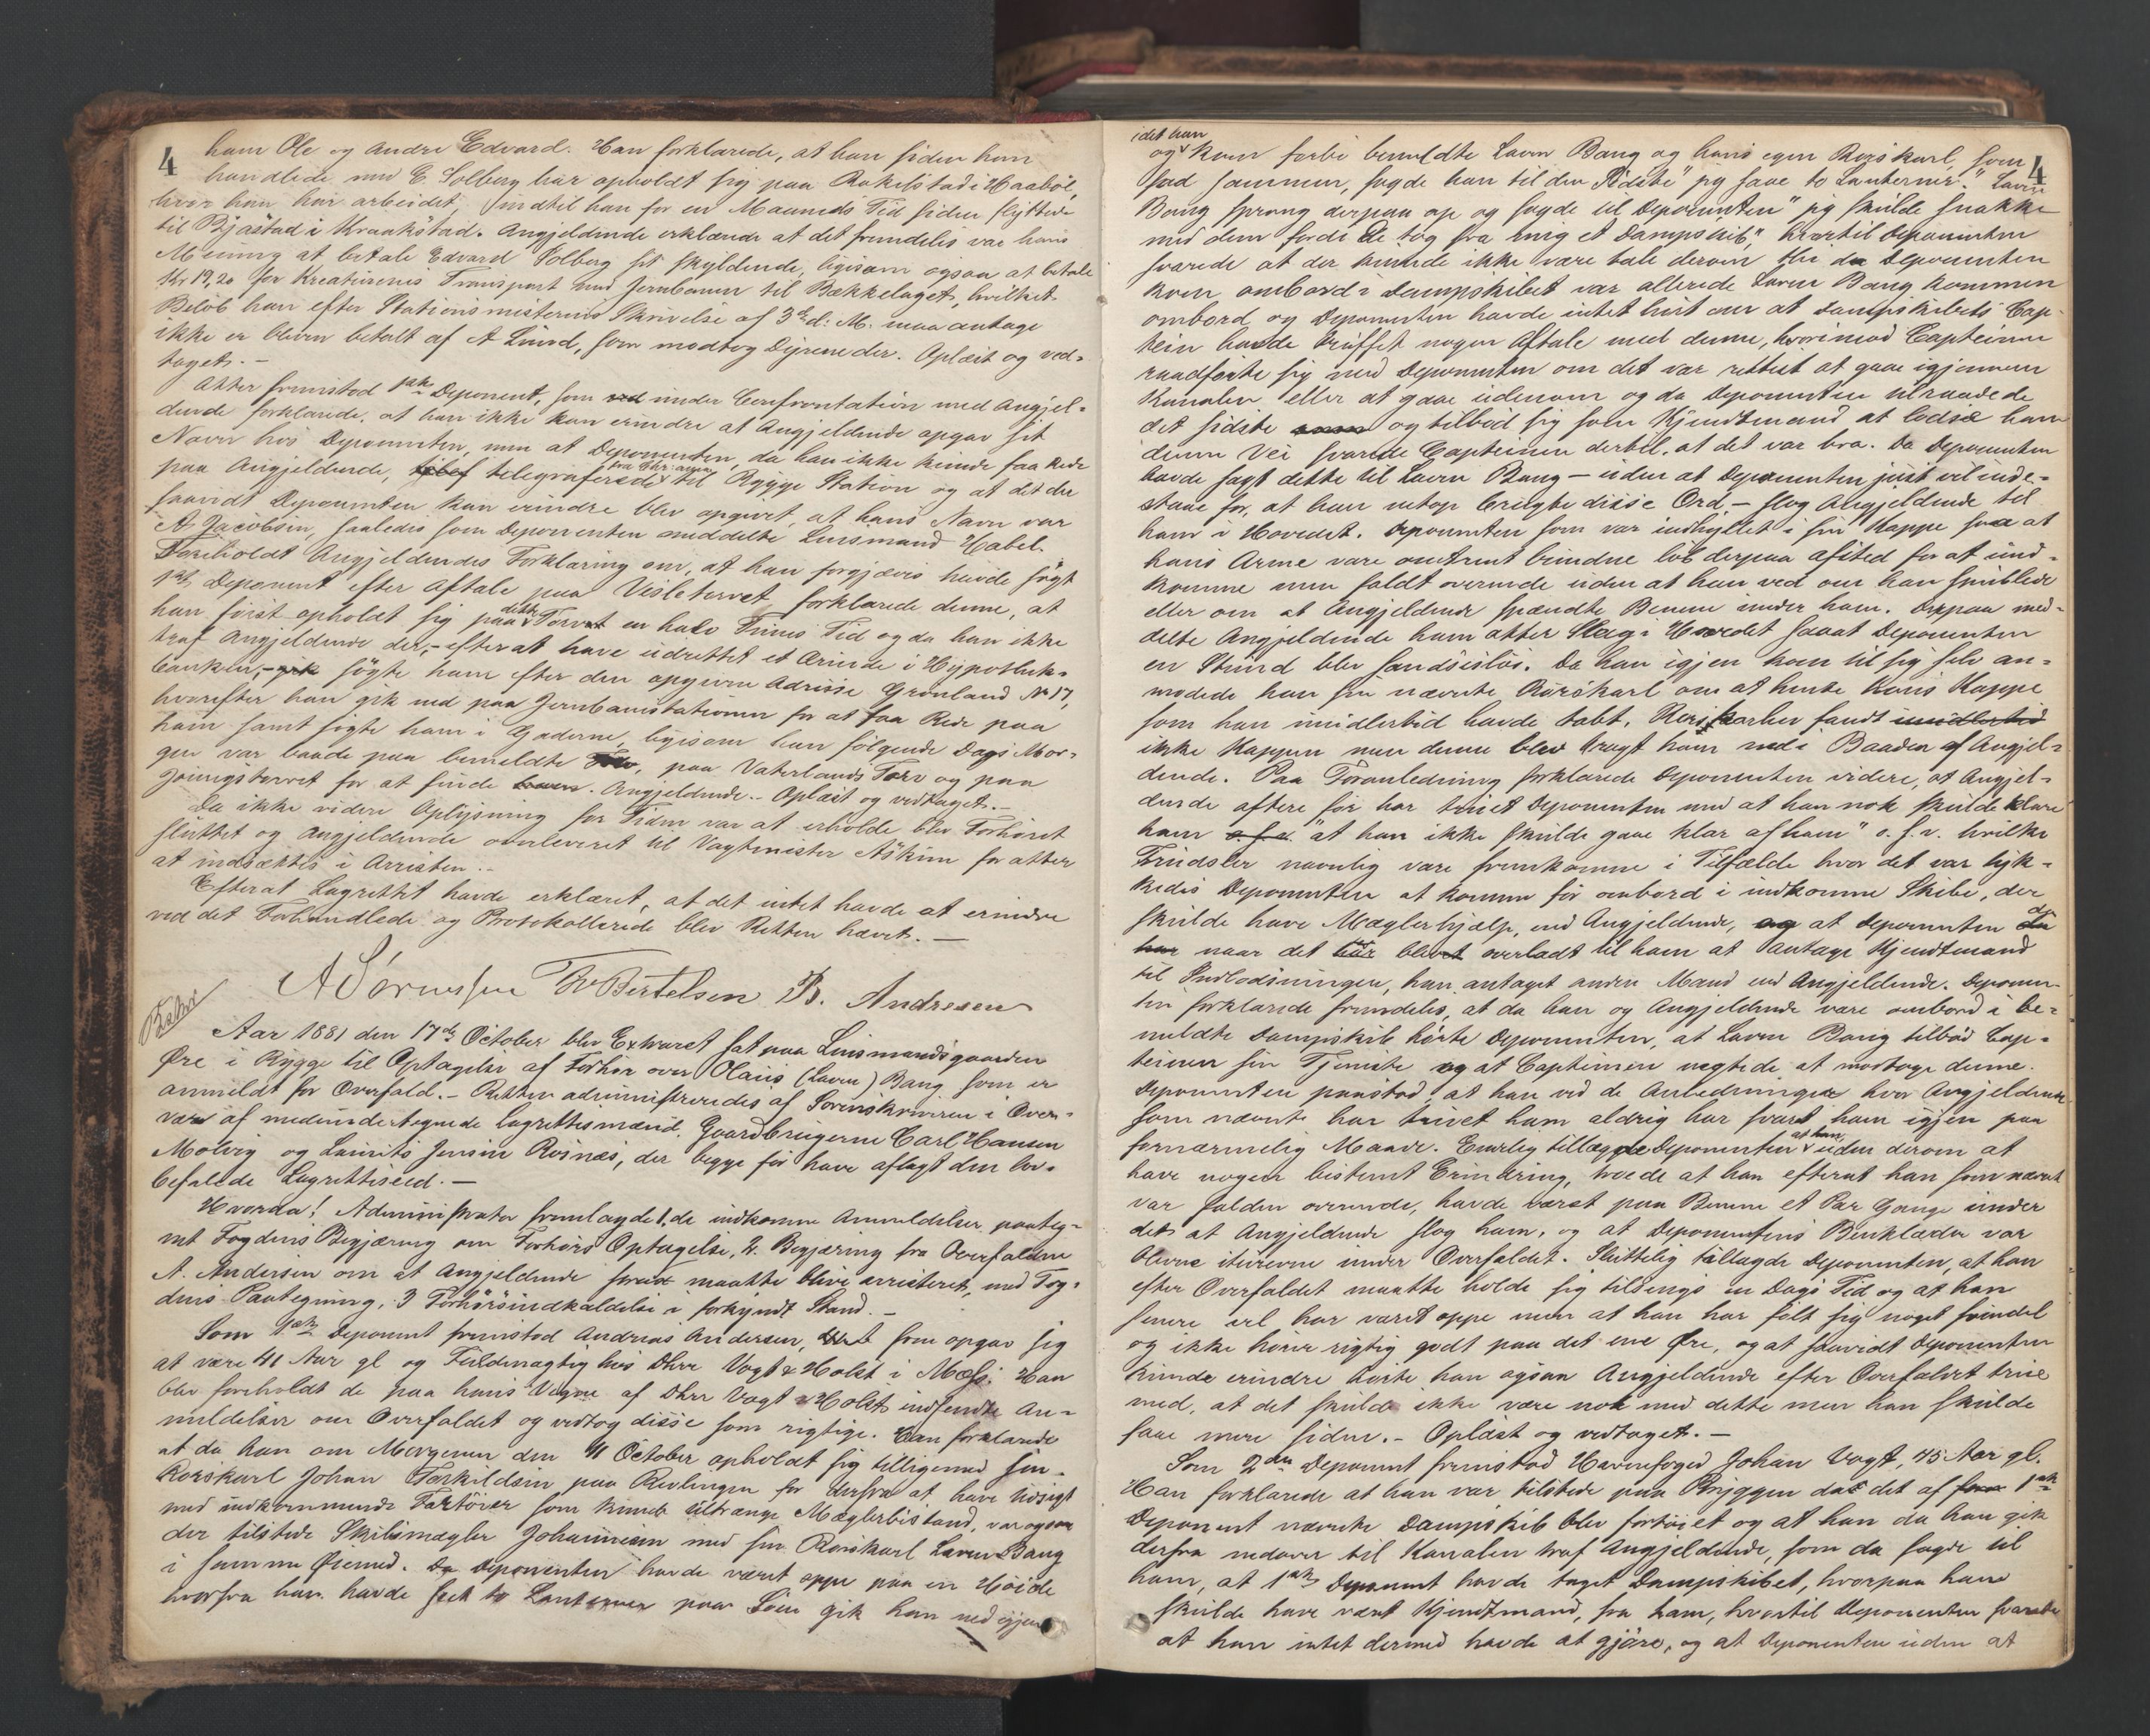 4
ham Ole og Andre Edvard. Han forklarede, at han siden han
handlede med E. Solberg har opholdt sig paa Rakelstad i Haaböl,
hvor han har arbeidet, indtil han for en Maaneds Tid siden flyttede
til Bjästad i Kraakstad. Angjeldende erklærede at det fremdeles var hans
Mening at betale Edvard Solberg sit skyldende, ligesom ogsaa at betale
Kr 19,20 for Kreaturenes Transport med Jernbanen til Bækkelaget, hvilket
Belöb han efter Stationsmesterens Skrivelse af 3die d: M. maa antage
ikke er bleven betalt af A Lund, som modtog Dyrene der. Oplæst og ved-
taget. -
Atter fremstod 1ste Deponent, som ved under Confrontation med Angjel-
dende forklarede, at han ikke kan erindre at Angjeldende opgav sit
Navn hos Deponenten, men at Deponenten, da han ikke kunde faa Rede
paa Angjeldende, telegraferede fra Chr.ania til Rygge Station og at det der
saavidt Deponenten kan erindre blev opgivet, at hans Navn var
A. Jacobsen, saaledes som Deponenten meddelte Lensmand Habel.
Foreholdt Angjeldendes Forklaring om, at han forgjæves havde sögt
1ste Deponent efter Aftale paa Vesletorvet forklarede denne, at
han först opholdt sig paa dette Torvet en halv Times Tid og da han ikke
traf Angjeldende der, - efter at have udrettet et Ærinde i Hypothek-
banken, - gik sögte ham efter den opgivne Adresse Grönland No 17,
hvorefter han gik ned paa Jernbanestationen for at faa Rede paa
ham samt sögte ham i Gaderne, ligesom han fölgende Dags Mor-
gen var baade paa bemeldte Torv, paa Vaterlands Torv og paa
Youngstorvet for at finde ham. Angjeldende. - Oplæst og vedtaget. -
Da ikke videre Oplysning for Tiden var at erholde blev Forhöret
sluttet og Angjeldende overleveret til Vagtmester Askim for atter
at indsættes i Arresten. -
Efterat Lagrettet havde erklæret, at det intet havde at erindre
ved det Forhandlede og Protokollerede blev Retten hævet. -
A Sörenssen Fr Bertelsen B. Andresen
Aar 1881 den 17de October blev Extraret sat paa Lensmandsgaarden
Öre i Rygge til Optagelse af Forhör over Olaus (Laven) Bang som er
anmeldt for Overfald. - Retten administreredes af Sorenskriveren i Over-
vær af medundertegnede Lagrettesmænd. Gaardbrugerne Carl Hansen
Molvig og Laurits Jensen Rosnæs, der begge för have aflagt den lov-
befalede Lagretteseed. -
Hvorda! Administrator fremlagde 1. de indkomne Anmeldelser paateg-
net Fogdens Begjæring om Forhörs Optagelse, 2. Begjæring fra Overfaldne
A. Andersen om at Angjeldende maatte blive arresteret, med Fog-
dens Paategning, 3 Forhörsindkaldelse i forkyndt Stand. -
Som 1ste Deponent fremstod Andreas Andersen, som opgav sig
at være 41 Aar gl og Fuldmægtig hos Dhrr Vogt & Holst i Moss. Han
blev foreholdt de paa hans Vegne af Dhrr Vogt & Holst indsendte An-
meldelser om Overfaldet og vedtog disse som rigtige. Han forklarede
at da han om Morgenen den 11 October opholdt sig tilligemed sin
Rorskarl Johan Torkildsen paa Revlingen for derfra at have Udsigt
med indkommende Fartöier som kunde tiltrænge Mæglerbistand, var ogsaa
der tilstede Skibsmægler Johannesen med sin Rorskarl Laven Bang
i samme Öiemed. Da Deponenten havde været oppe paa en Höide
hvorfra han havde seet to Lanterner paa Söen gik han ned igjen
4
og idet han kom forbi bemeldte Laven Bang og hans egen Rorskarl, som
sad sammen, sagde han til den Sidste "jeg saae to Lanterner." Laven
Bang sprang derpaa op og sagde til Deponenten "jeg skulde snakke
med dem fordi De tog fra mig et Dampskib," hvortil Deponenten
svarede at der kunde ikke være tale derom thi da Deponenten
kom ombord i Dampskibet var allerede Laven Bang kommen
ombord og Deponenten havde intet hört om at Dampskibets Cap-
tein havde truffet nogen Aftale med denne, hvorimod Capteinen
raadförte sig med Deponenten om det var rettest at gaae igjennem
Kanalen eller at gaae udenom og da Deponenten tilraadede
det sidste som og tilböd sig som Kjendtmand at lodse ham
denne Vei svarede Capteinen dertil, at det var bra. Da Deponenten
havde sagt dette til Laven Bang - uden at Deponenten just vil inde-
staae for, at han netop brugte disse Ord - slog Angjeldende til
ham i Hovedet. Deponenten som var indhyllet i sin Kappe saa at
hans Arme vare omtrent bundne löb derpaa afsted for at und-
komme men faldt overende uden at han ved om han snublede
eller om at Angjeldende spændte Benene under ham. Derpaa med-
delte Angjeldende ham atter Slag i Hovedet saaat Deponenten
en Stund blev sandseslös. Da han igjen kom til sig selv an-
modede han sin nævnte Rorskarl om at hente hans Kappe
som han imidlertid havde tabt. Rorskarlen fandt imidlertid
ikke Kappen men denne blev bragt ham ned i Baaden af Angjel-
dende. Paa Foranledning forklarede Deponenten videre, at Angjel-
dende oftere för har truet Deponenten med at han nok skulde klare
ham o.s.v. "at han ikke skulde gaae klar af ham" o. s. v. hvilke
Trudsler navnlig vare fremkomne i Tilfælde hvor det var lyk-
kedes Deponenten at komme för ombord i indkomne Skibe, der
skulde have Mæglerhjælp, end Angjeldende, og at Deponenten der
har naar det har blevet overladt til ham at antage Kjendtmand
til Indlodsningen, har antaget anden Mand end Angjeldende. Deponen-
ten forklarede fremdeles, at da han og Angjeldende vare ombord i be-
meldte Dampskib hörte Deponenten, at Laven Bang tilböd Cap-
teinen sin Tjeneste og at Capteinen nægtede at modtage denne.
Deponenten paastod, at han ved de Anledninger hvor Angjeldende
som nævnte har truet ham aldrig har svart ham igjen paa
fornærmelig Maade. Endelig tillagde Deponenten at han uden derom at
have nogen bestemt Erindring, troede at han efterat han som nævnt
var falden overende, havde været paa Benene et Par Gange under
det at Angjeldende slog ham, og at Deponentens Benklæder var
blevne iturevne under Overfaldet. Sluttelig tillagde Deponenten, at han
efter Overfaldet maatte holde sig tilsengs en Dags Tid og at han
senere vel har været oppe men at han har fölt sig noget svimmel
og ikke hörer rigtig godt paa det ene Öre, og at saavidt Deponenten
kunde erindre hörte han ogsaa Angjeldende efter Overfaldet true
med, at det skulde ikke være nok med dette men han skulde
faae mere siden. - Oplæst og vedtaget. -
Som 2den Deponent fremstod Havnefoged Johan Vogt, 45 Aar gl.
Han forklarede at han var tilstede paa Bryggen da det af 1ste
Deponent nævnte Dampskib blev fortöiet og at han da han gik
derfra nedover til Kanalen traf Angjeldende, som da sagde til
ham, at 1ste Deponent havde taget Dampskibet, hvorpaa han
skulde have været Kjendtmand, fra ham, hvortil Deponenten svarede
at han intet dermed havde at gjöre, og at Deponenten uden at